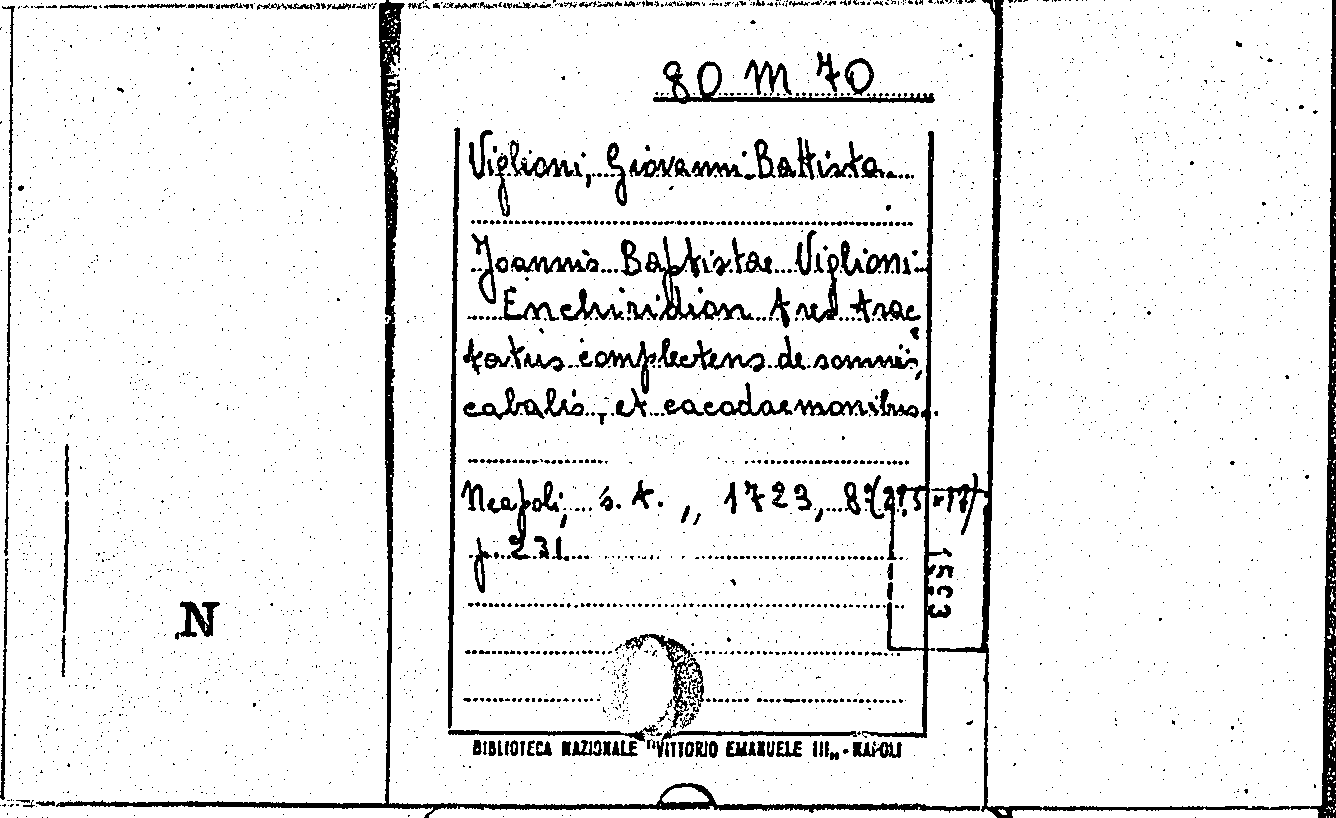 80 M 70
Viglioni, Giovanni Battista
Joannis Baptistae Viglioni
Enchiridion tres trac
tatus complectens de somnis,
cabalis, et cacodaemonibus.
Neapoli, s. t., 1723, 8° (21,5 x 17)
p. 231
1553
N
BIBLIOTECA NAZIONALE "VITTORIO EMANUELE III„ - NAPOLI